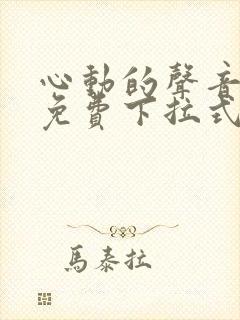 心動的聲音
免費下拉式
馬泰拉